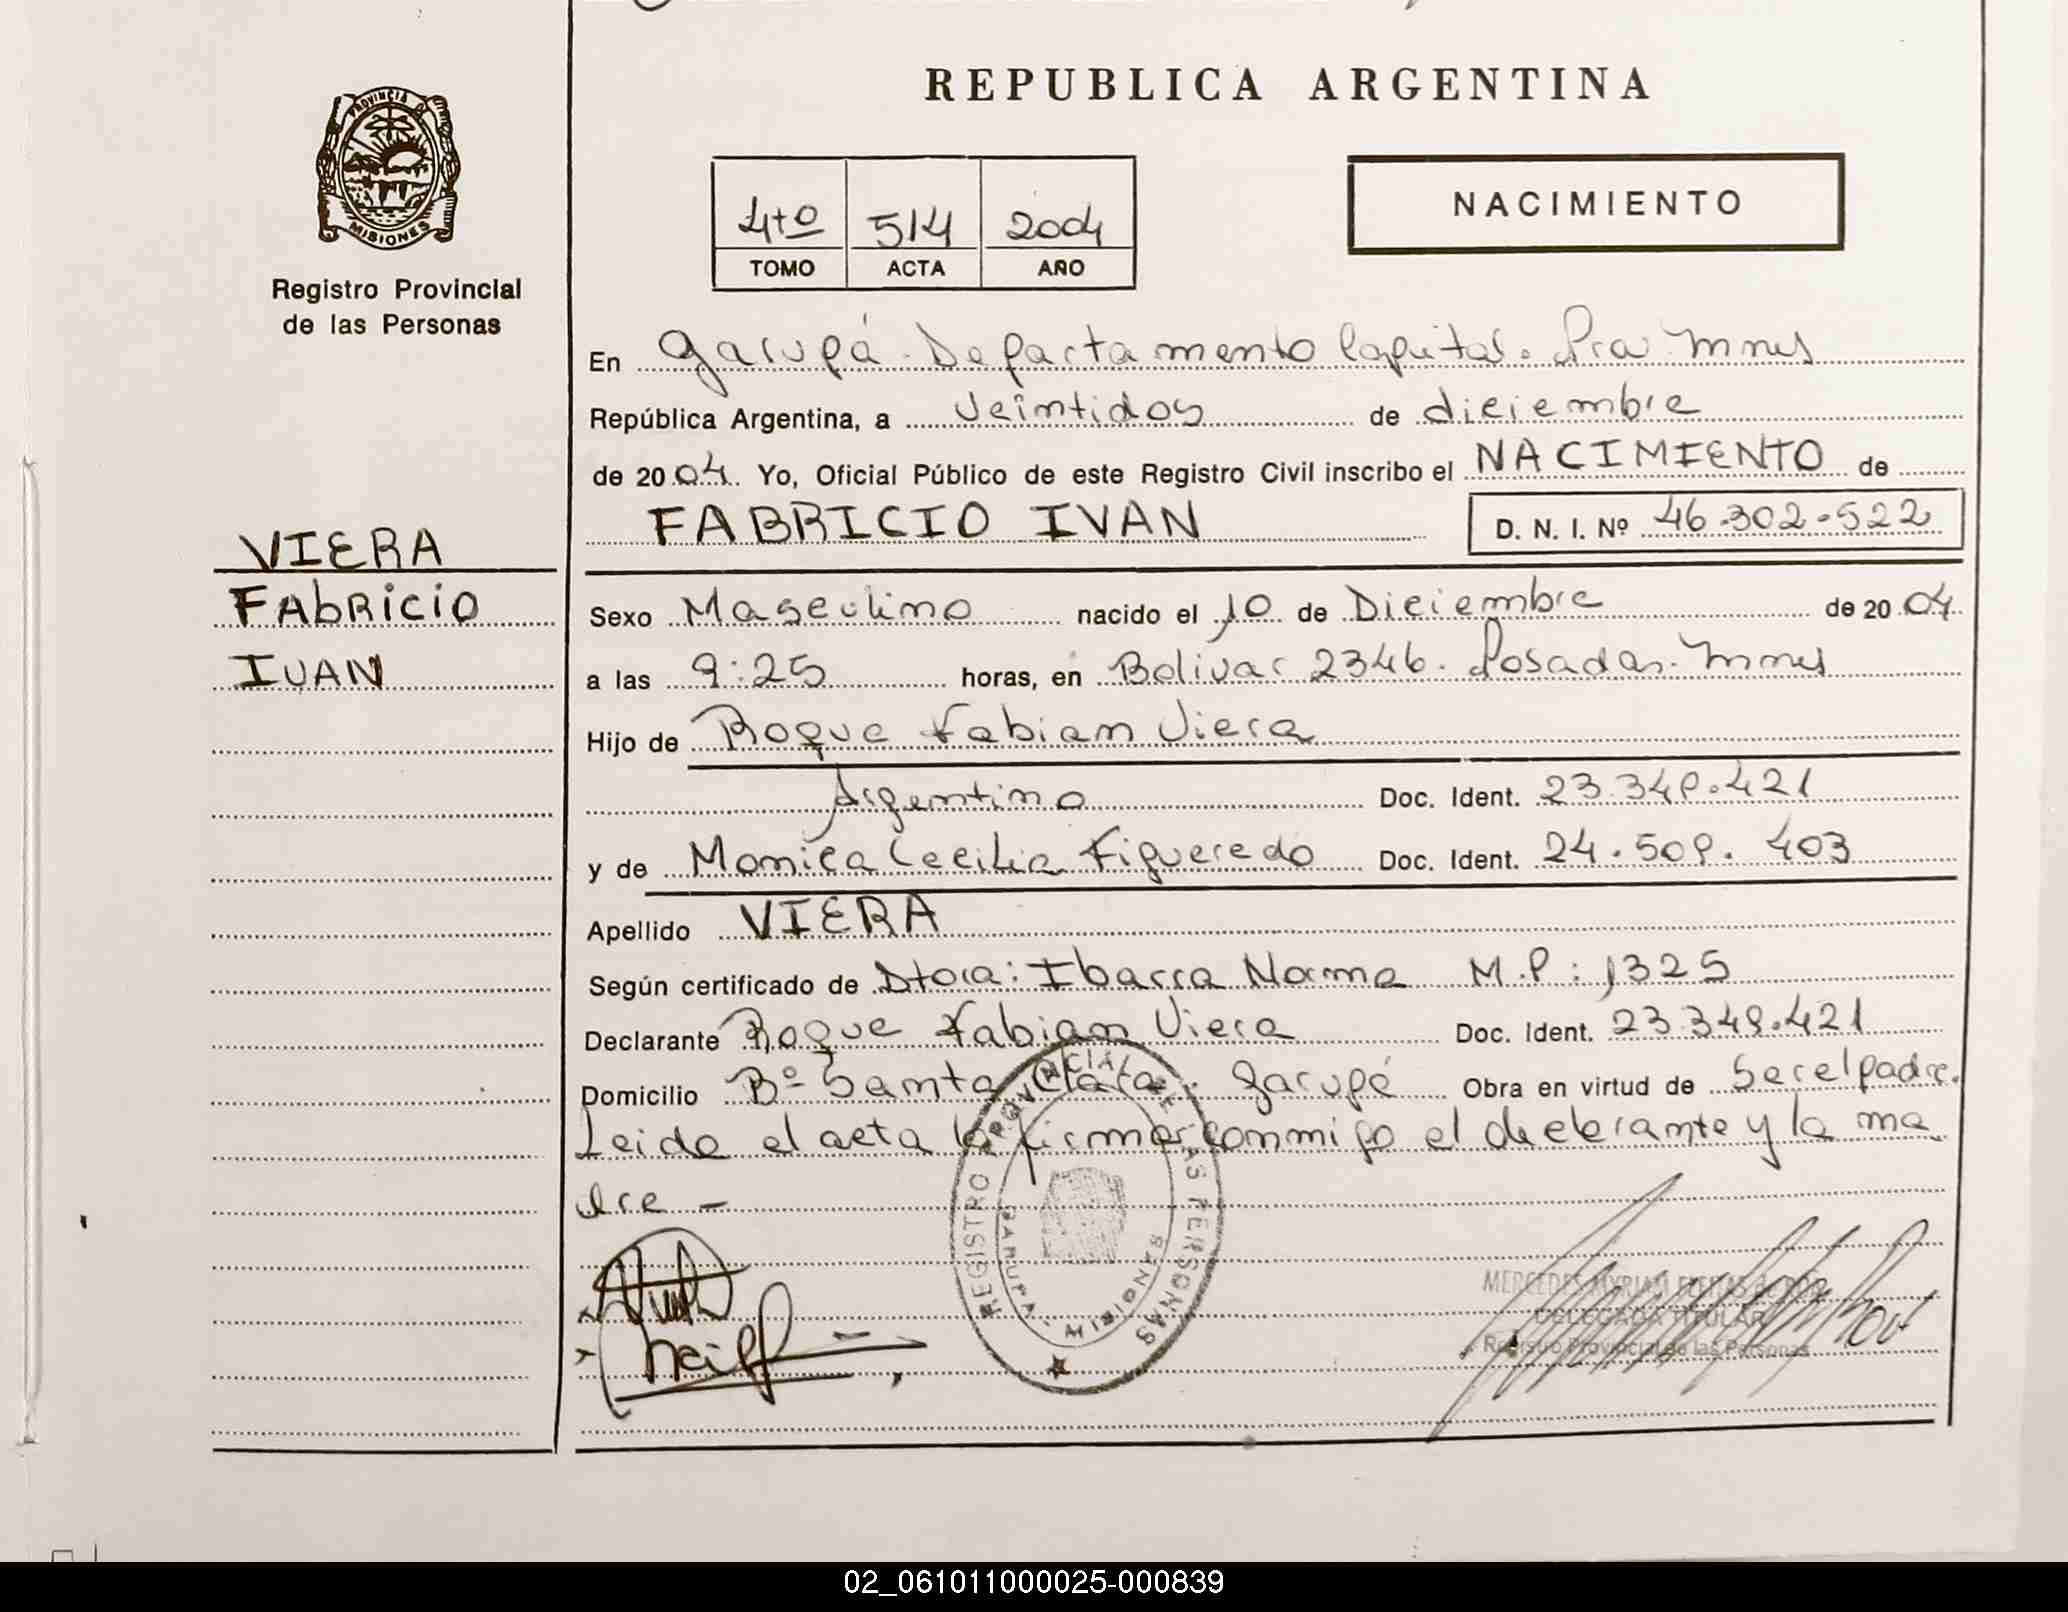 REPUBLICA ARGENTINA
PROVINCIA DE
MISIONES
Registro Provincial
de las Personas
4to 514 2004
TOMO ACTA AÑO
NACIMIENTO
En Garupá. Departamento Capital. Pcia. Mnes
República Argentina, a Veintidos de diciembre
de 2004. Yo, Oficial Público de este Registro Civil inscribo el NACIMIENTO de
FABRICIO IVAN D. N. I. Nº 46.302.522
VIERA
Fabricio
IVAN
Sexo Masculino nacido el 10 de Diciembre de 2004
a las 9:25 horas, en Bolivar 2346. Posadas. Mnes
Hijo de Roque Fabian Viera
Argentino Doc. Ident. 23.349.421
y de Monica Cecilia Figueredo Doc. Ident. 24.509.403
Apellido VIERA
Según certificado de Dtora: Ibarra Norma M.P: 1325
Declarante Roque Fabian Viera Doc. Ident. 23.349.421
Domicilio Bº Santa Clara. Garupá Obra en virtud de Ser el padre.
Leida el acta la firman conmigo el declarante y la ma
dre -
REGISTRO PROVINCIAL DE LAS PERSONAS
GARUPA MISIONES
MERCEDES MYRIAM
DELEGADA TITULAR
Registro Provincial de las Personas
02_061011000025-000839